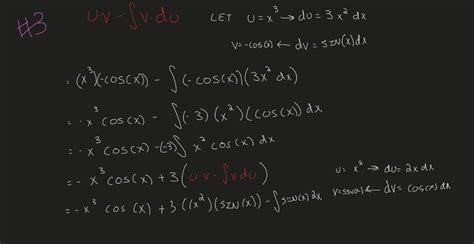 #3 u·v - ∫v·du LET u = x³ → du = 3x² dx
v = -cos(x) ← dv = sin(x) dx
= (x³)(-cos(x)) - ∫(-cos(x))(3x² dx)
= -x³ cos(x) - ∫(-3)(x²)(cos(x)) dx
= -x³ cos(x) -(-3)∫ x² cos(x) dx
= -x³ cos(x) + 3(u·v - ∫v du) u = x² → du = 2x dx
= -x³ cos(x) + 3((x²)(sin(x)) - ∫sin(x) 2x v = sin(x) ← dv = cos(x) dx